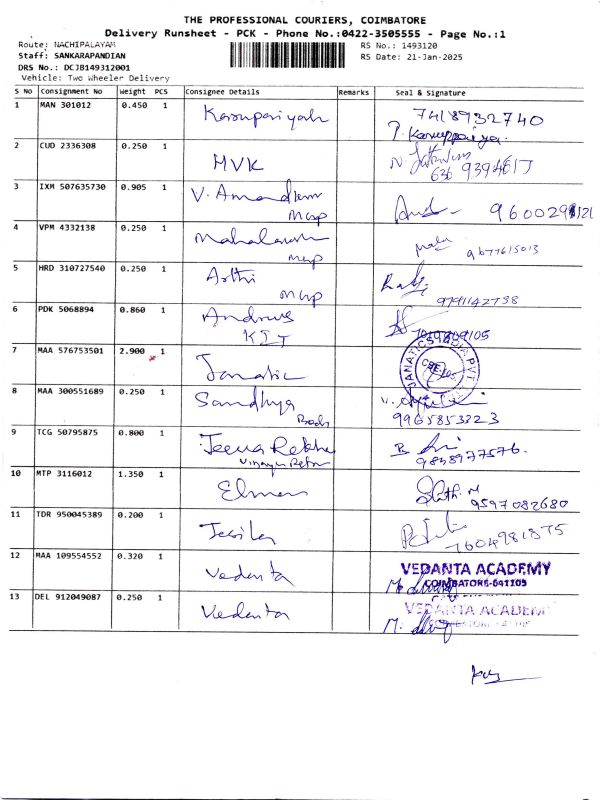 THE PROFESSIONAL COURIERS, COIMBATORE
Delivery Runsheet - PCK - Phone No.:0422-3505555 - Page No.:1
Route: NACHIPALAYAM
RS No.: 1493120
Staff: SANKARAPANDIAN
RS Date: 21-Jan-2025
DRS No.: DCJB149312001
Vehicle: Two Wheeler Delivery
S No Consignment No Weight PCS Consignee Details Remarks Seal & Signature
1 MAN 301012 0.450 1 Karuppaiyah 7418932740
P. Karuppaiya.
2 CUD 2336308 0.250 1 MVK
3 IXM 507635730 0.905 1 V.
4 VPM 4332138 0.250 1 9677615013
5 HRD 310727540 0.250 1 Arthi 9791142738
6 PDK 5068894 0.860 1 Andrius
7 MAA 576753501 2.900 1 Janatic JANATICS INDIA PVT
8 MAA 300551689 0.250 1 Sandhya 9965853223
9 TCG 50795875 0.800 1 Jeena Rekha
10 MTP 3116012 1.350 1 Elmen 9597082680
11 TDR 950045389 0.200 1 7604981875
12 MAA 109554552 0.320 1 Vedanta VEDANTA ACADEMY
COIMBATORE-641105
13 DEL 912049087 0.250 1 Vedanta VEDANTA ACADEMY